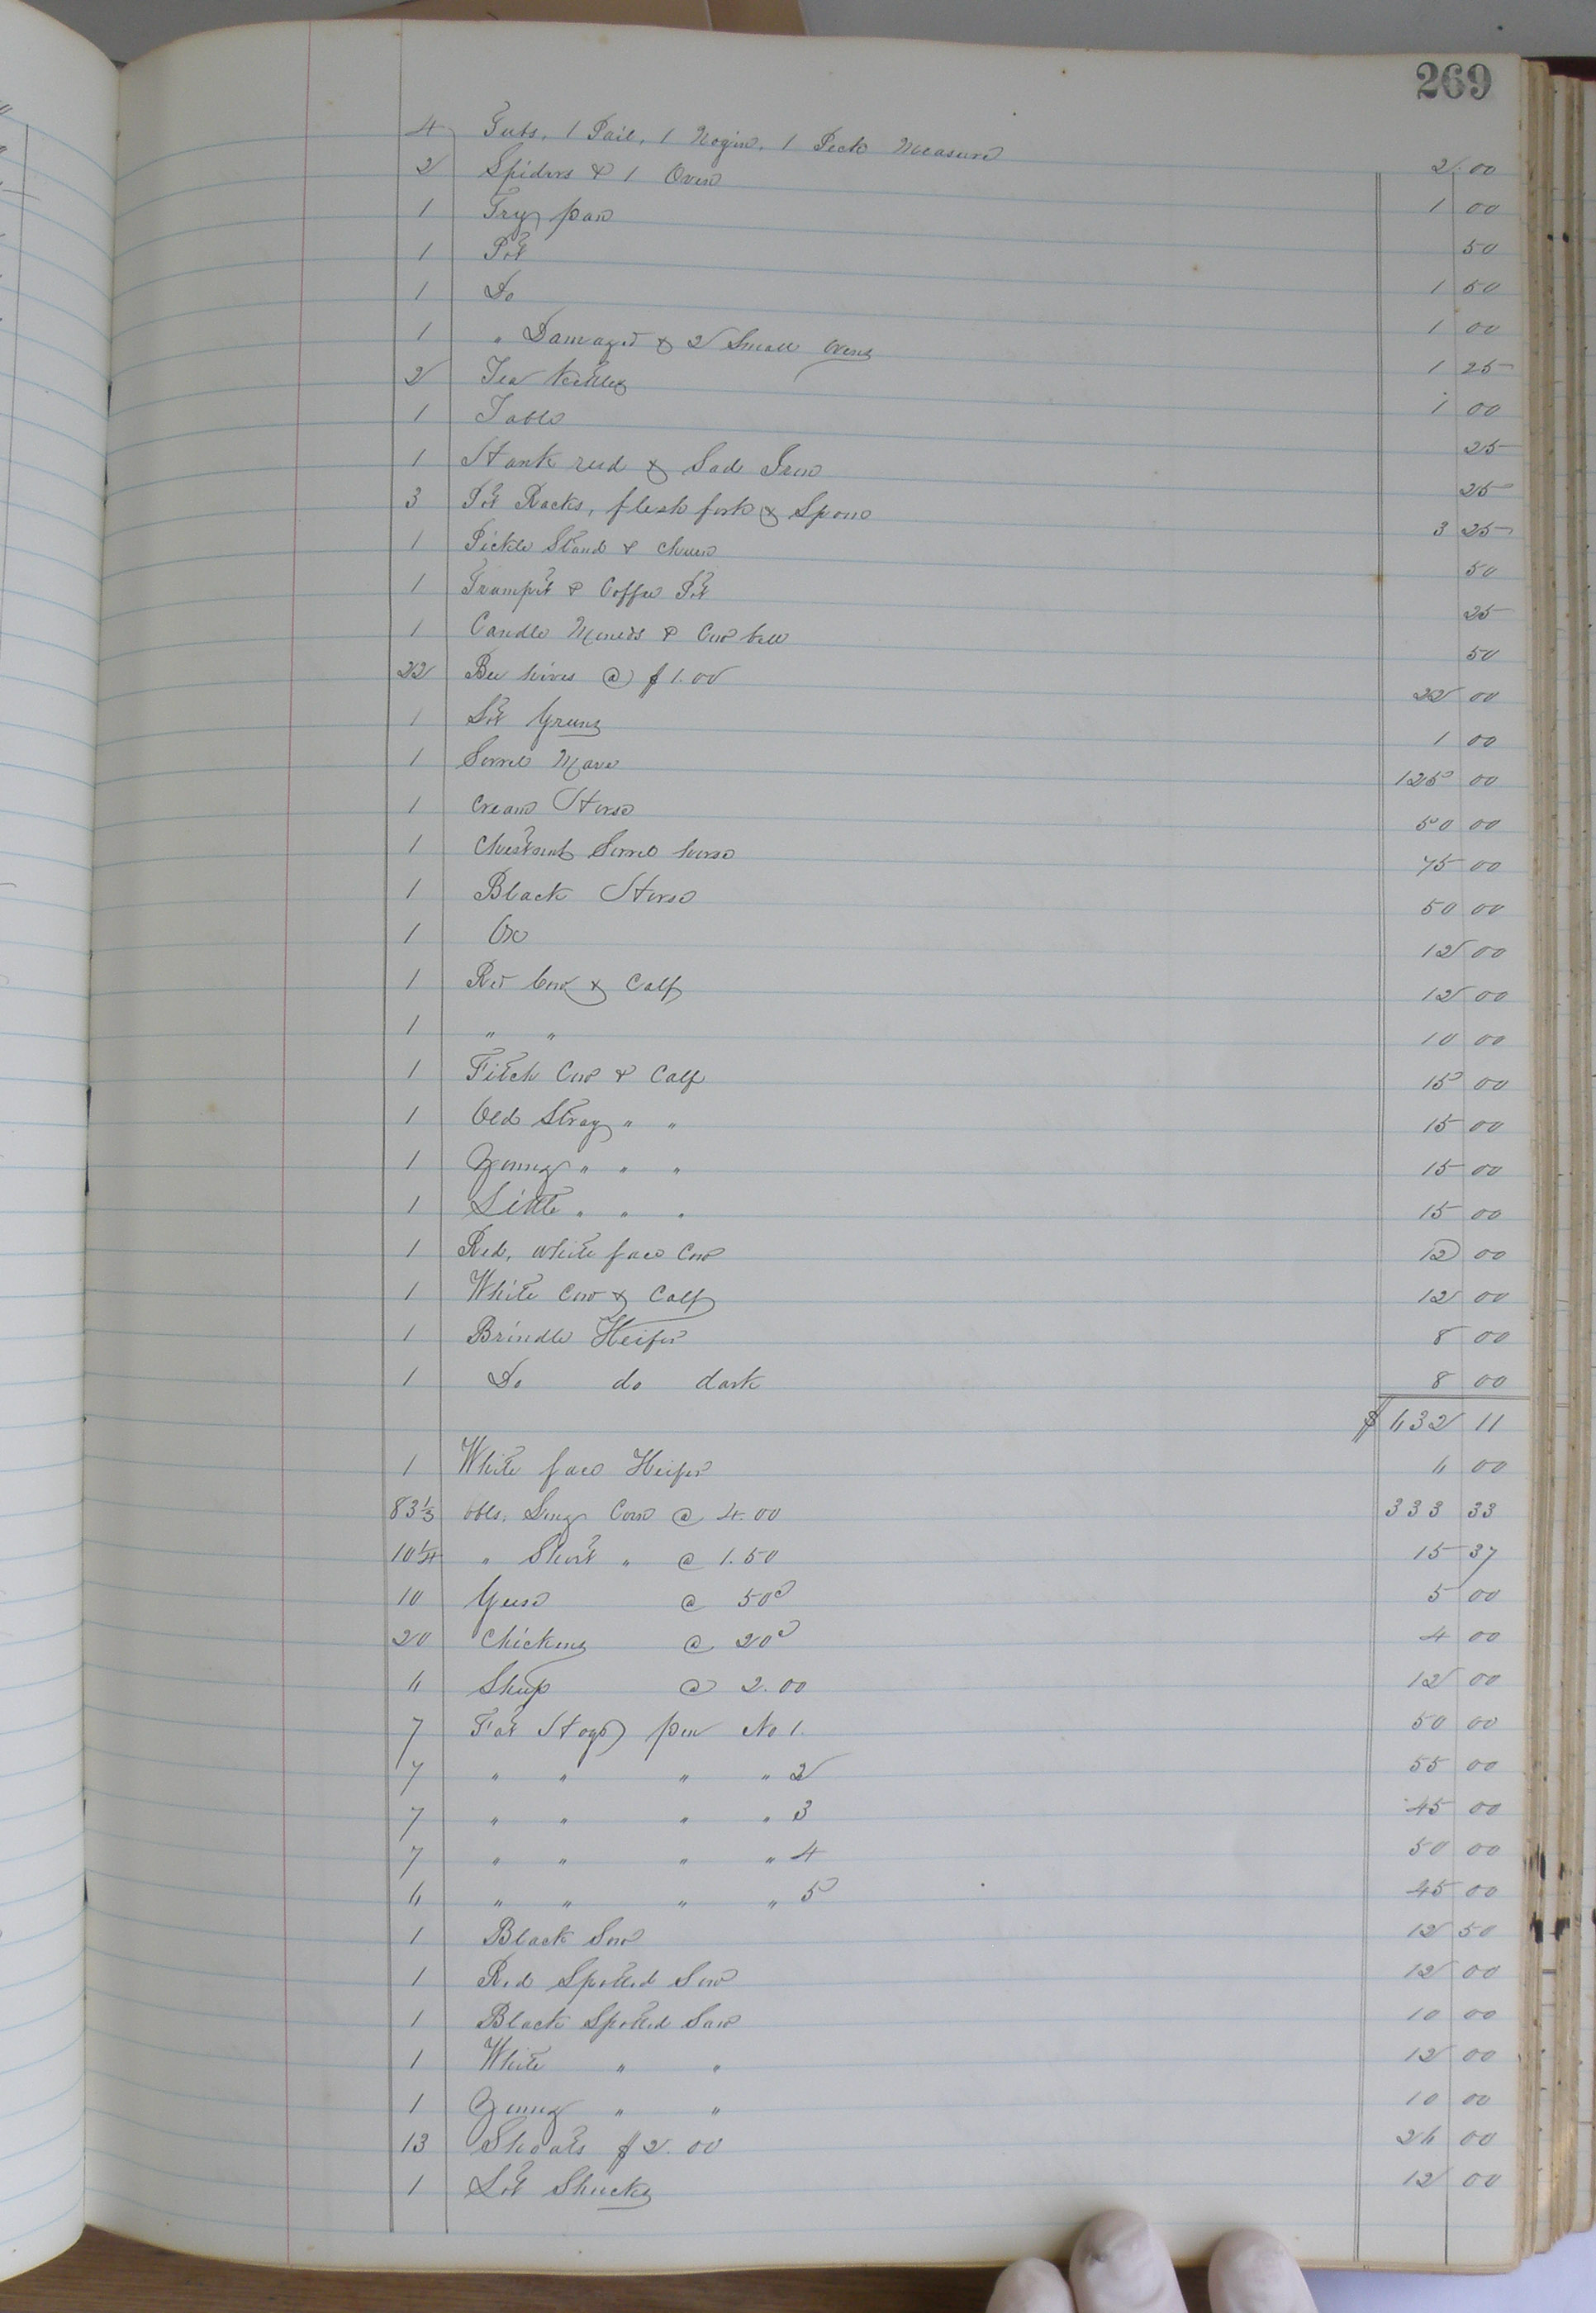 269
4 Tubs, 1 Pail, 1 Nogin, 1 Peck Measure 2.00
2 Spiders & 1 Oven 1 00
1 Fry pan 50
1 Pot 1 50
1 Do 1 00
1 " Damaged & 2 Small Ovens 1 25
2 Tea Kettles 1 00
1 Table 25
1 Hank reed & Sad Iron 25
3 Pot Racks, flesh fork & Spoon 3 25
1 Pickle Stand & Churn 50
1 Trumpet & Coffee Pot 25
1 Candle Moulds & Cow bell 50
22 Bee hives @ $1.00 22 00
1 Lot Greens 1 00
1 Sorrel Mare 125 00
1 Cream Horse 50 00
1 Chestnut Sorrel horse 75 00
1 Black Horse 50 00
1 Ox 12 00
1 Red Cow & Calf 12 00
1 " " 10 00
1 Fitch Cow & Calf 15 00
1 Old Stray " " 15 00
1 Young " " " 15 00
1 Little " " " 15 00
1 Red, white face Cow 12 00
1 White Cow & Calf 12 00
1 Brindle Heifer 8 00
1 Do do dark 8 00
$ 632 11
1 White face Heifer 6 00
83⅓ bbls. Long Corn @ 4.00 333 33
10¼ " Short " @ 1.50 15 37
10 Geese @ 50c 5 00
20 Chickens @ 20c 4 00
6 Sheep @ 2.00 12 00
7 Fat Hogs pen No 1. 50 00
7 " " " " 2 55 00
7 " " " " 3 45 00
7 " " " " 4 50 00
6 " " " " 5 45 00
1 Black Sow 12 50
1 Red Spotted Sow 12 00
1 Black Spotted Sow 10 00
1 White " " 12 00
1 Young " " 10 00
13 Shoats $2.00 26 00
1 Lot Shucks 12 00